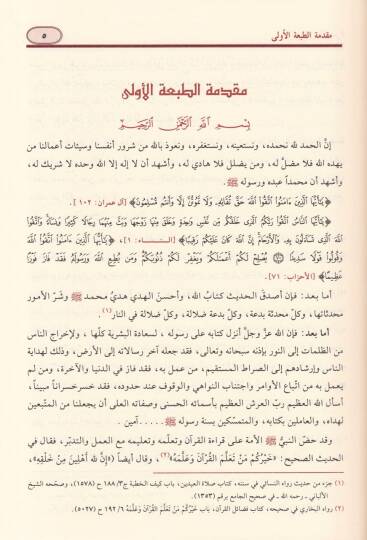 مقدمة الطبعة الأولى
٥
مقدمة الطبعة الأولى
بِسْمِ اللَّهِ الرَّحْمَنِ الرَّحِيمِ
إنَّ الحمد لله نحمده، ونستعينه، ونستغفره، ونعوذ بالله من شرور أنفسنا وسيئات أعمالنا من
يهده الله فلا مضلَّ له، ومن يضلل فلا هادي له، وأشهد أن لا إله إلا الله وحده لا شريك له،
وأشهد أن محمداً عبده ورسوله ﷺ.
﴿يَٰٓأَيُّهَا ٱلَّذِينَ ءَامَنُوا۟ ٱتَّقُوا۟ ٱللَّهَ حَقَّ تُقَاتِهِۦ وَلَا تَمُوتُنَّ إِلَّا وَأَنتُم مُّسْلِمُونَ﴾ [آل عمران: ١٠٢].
﴿يَٰٓأَيُّهَا ٱلنَّاسُ ٱتَّقُوا۟ رَبَّكُمُ ٱلَّذِى خَلَقَكُم مِّن نَّفْسٍ وَٰحِدَةٍ وَخَلَقَ مِنْهَا زَوْجَهَا وَبَثَّ مِنْهُمَا رِجَالًا كَثِيرًا وَنِسَآءً وَٱتَّقُوا۟
ٱللَّهَ ٱلَّذِى تَسَآءَلُونَ بِهِۦ وَٱلْأَرْحَامَ إِنَّ ٱللَّهَ كَانَ عَلَيْكُمْ رَقِيبًا﴾ [النساء: ١]، ﴿يَٰٓأَيُّهَا ٱلَّذِينَ ءَامَنُوا۟ ٱتَّقُوا۟ ٱللَّهَ
وَقُولُوا۟ قَوْلًا سَدِيدًا ۝ يُصْلِحْ لَكُمْ أَعْمَٰلَكُمْ وَيَغْفِرْ لَكُمْ ذُنُوبَكُمْ وَمَن يُطِعِ ٱللَّهَ وَرَسُولَهُۥ فَقَدْ فَازَ فَوْزًا
عَظِيمًا﴾ [الأحزاب: ٧١].
أما بعد: فإن أصدقَ الحديث كتابُ الله، وأحسنَ الهدي هديُ محمد ﷺ وشرّ الأمور
محدثاتها، وكلّ محدثة بدعة، وكلّ بدعة ضلالة، وكلّ ضلالة في النار(١).
أما بعد: فإن الله عزَّ وجلَّ أنزل كتابه على رسوله ، لسعادة البشرية كلّها ، ولإخراج الناس
من الظلمات إلى النور بإذنه سبحانه وتعالى، فقد جعله آخر رسالاته إلى الأرض، وذلك لهداية
الناس وإرشادهم إلى الصراط المستقيم، من عمل به، فقد فاز في الدنيا والآخرة، ومن لم
يعمل به من اتّباع الأوامر واجتناب النواهي والوقوف عند حدوده، فقد خسر خسراناً مبيناً،
أسأل الله العظيم ربّ العرش العظيم بأسمائه الحسنى وصفاته العلى أن يجعلنا من المتّبعين
لهداه، والعاملين بكتابه، والمتمسّكين بسنة رسوله ﷺ.....آمين .
وقد حضّ النبيُّ ﷺ الأمة على قراءة القرآن وتعلّمه وتعليمه مع العمل والتدبّر، فقال في
الحديث الصحيح: «خَيْرُكُمْ مَنْ تَعَلَّمَ القُرْآنَ وَعَلَّمَهُ»(٢)، وقال أيضاً («إنَّ لله أَهْلِينَ مِنْ خَلْقِهِ»،
(١) جزء من حديث رواه النسائي في سننه، كتاب صلاة العيدين، باب كيف الخطبة ج٣/ ١٨٨ ح (١٥٧٨)، وصحّحه الشيخ
الألباني ـ رحمه الله ـ في صحيح الجامع برقم (١٣٥٣).
(٢) رواه البخاري في صحيحه، كتاب فضائل القرآن، باب خَيْرُكُمْ مَنْ تَعَلَّمَ القُرْآنَ وَعَلَّمَهُ ٦/ ١٩٢ ح (٥٠٢٧)